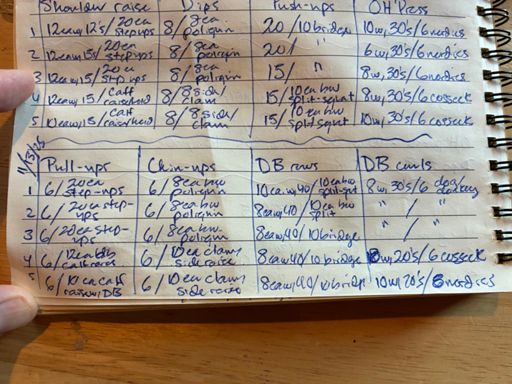 Shoulder raise | Dips | Push-ups | OH Press
1 | 12eaw, 12's/20ea step-ups | 8/8ea poliquin | 20/10 bridge | 10w, 30's/6 nordics
2 | 12eaw, 15/20ea step-ups | 8/8ea poliquin | 20/ " | 6w, 30's/6 nordics
3 | 12eaw, 15/20ea step ups | 8/8ea poliquin | 15/ " | 8w, 30's/6 nordics
4 | 12eaw, 15/calf raise | 8/8 side/clam | 15/10ea bw split-squat | 8w, 30's/6 cossack
5 | 10eaw, 15/calf raise | 8/8 side/clam | 15/10ea bw split squat | 10w, 30's/6 cossack
Pull-ups | Chin-ups | DB rows | DB curls
1 | 6/20ea step-ups | 6/8ea bw poliquin | 10eaw, 40/10ea bw split-sqt | 8w, 30's/6
2 | 6/20ea step-ups | 6/8ea bw poliquin | 8eaw, 40/10ea bw split | " / "
3 | 6/20ea step-ups | 6/8ea bw poliquin | 8eaw, 40/10 bridge | " / "
4 | 6/12ea calf | 6/10ea clam, side raise | 8eaw, 40/10 bridge | 8w, 20's/6 cossack
5 | 6/10ea calf raise w/ DB | 6/10ea clam, side raise | 8eaw, 40/10 bridge | 10w, 20's/6 nordics